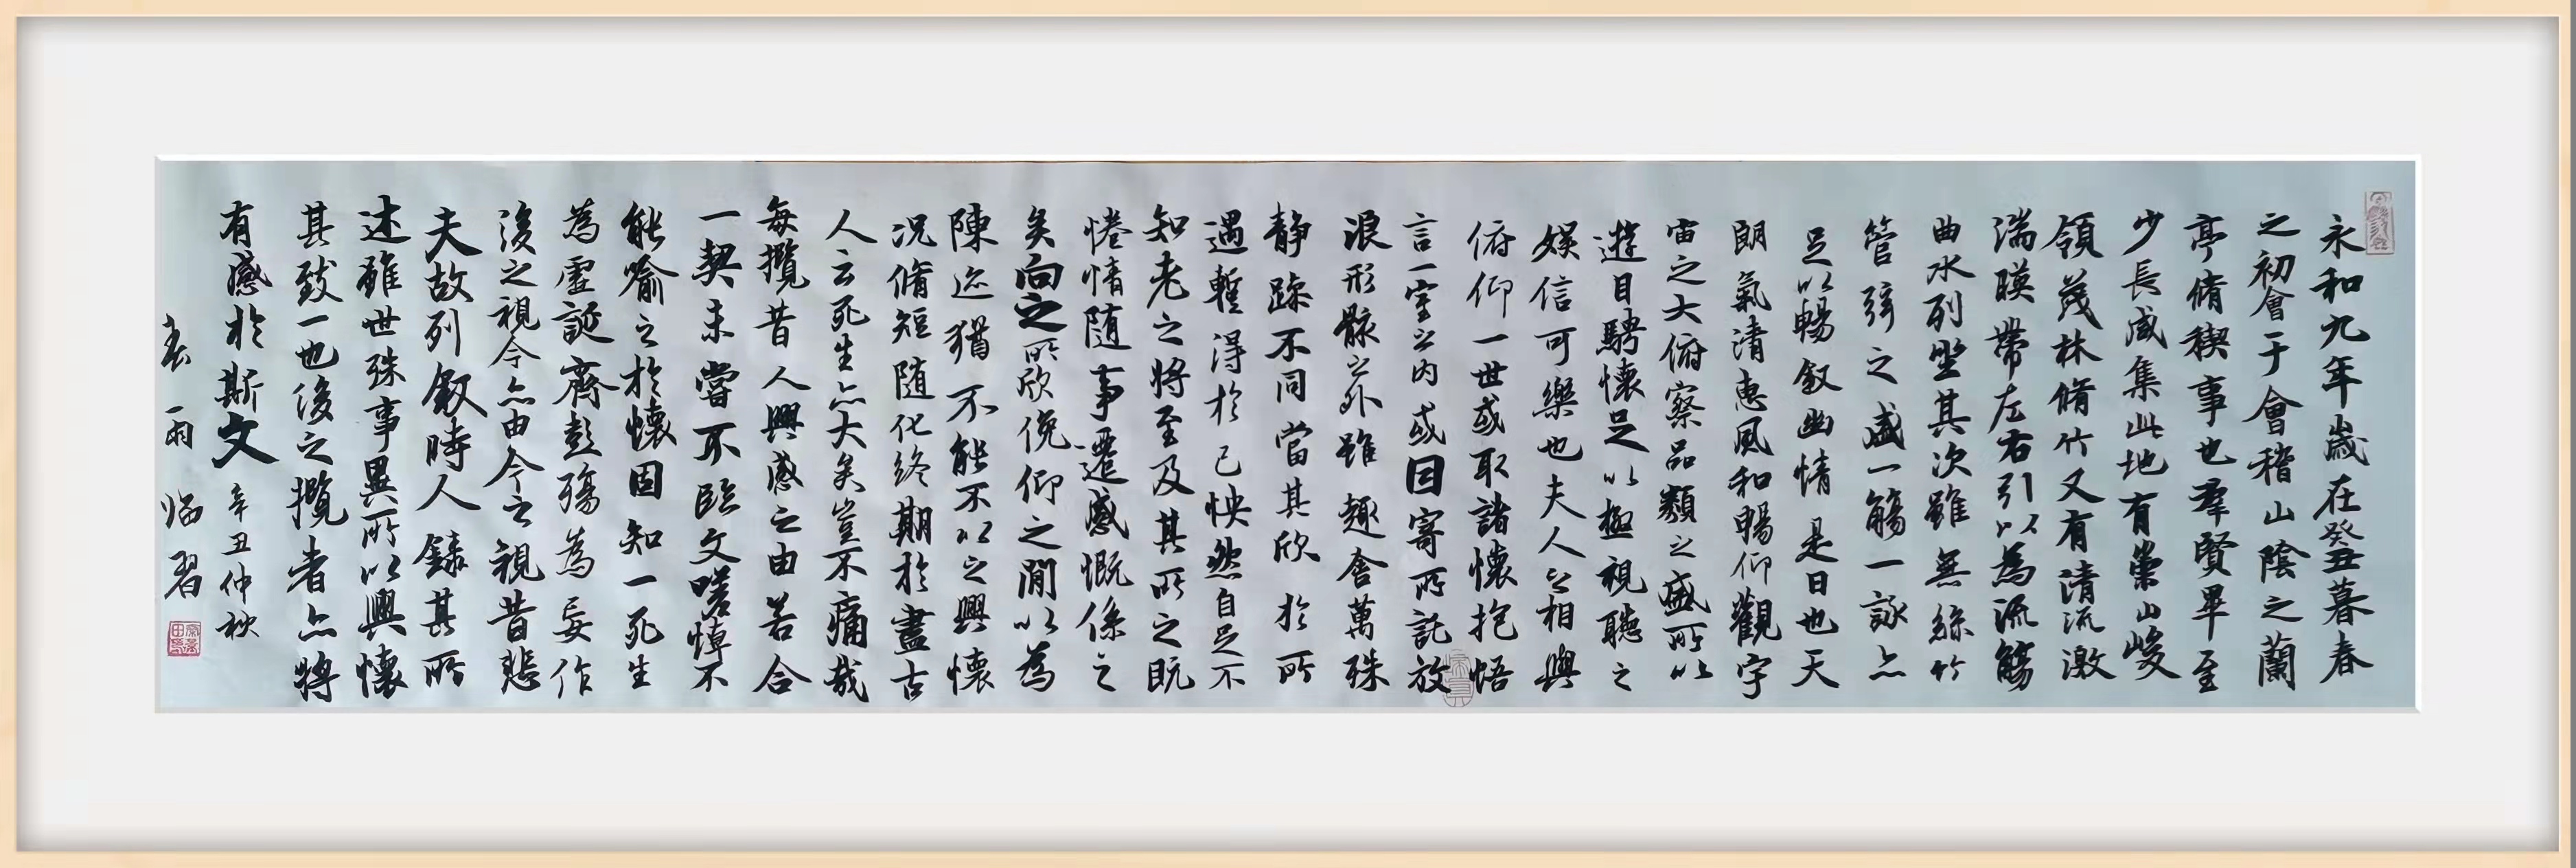 永和九年歲在癸丑暮春
之初會于會稽山陰之蘭
亭脩稧事也羣賢畢至
少長咸集此地有崇山峻
領茂林脩竹又有清流激
湍暎帶左右引以為流觴
曲水列坐其次雖無絲竹
管弦之盛一觴一詠亦
足以暢敘幽情是日也天
朗氣清惠風和暢仰觀宇
宙之大俯察品類之盛所以
遊目騁懷足以極視聽之
娛信可樂也夫人之相與
俯仰一世或取諸懷抱悟
言一室之內或因寄所託放
浪形骸之外雖趣舍萬殊
靜躁不同當其欣於所
遇暫得於己怏然自足不
知老之將至及其所之既
惓情随事遷感慨係之
矣向之所欣俛仰之閒以為
陳迹猶不能不以之興懷
况脩短随化終期於盡古
人云死生亦大矣豈不痛哉
每攬昔人興感之由若合
一契未嘗不臨文嗟悼不
能喻之於懷固知一死生
為虛誕齊彭殤為妄作
後之視今亦由今之視昔悲
夫故列敘時人錄其所
述雖世殊事異所以興懷
其致一也後之攬者亦將
有感於斯文 辛丑仲秋
春雨臨習